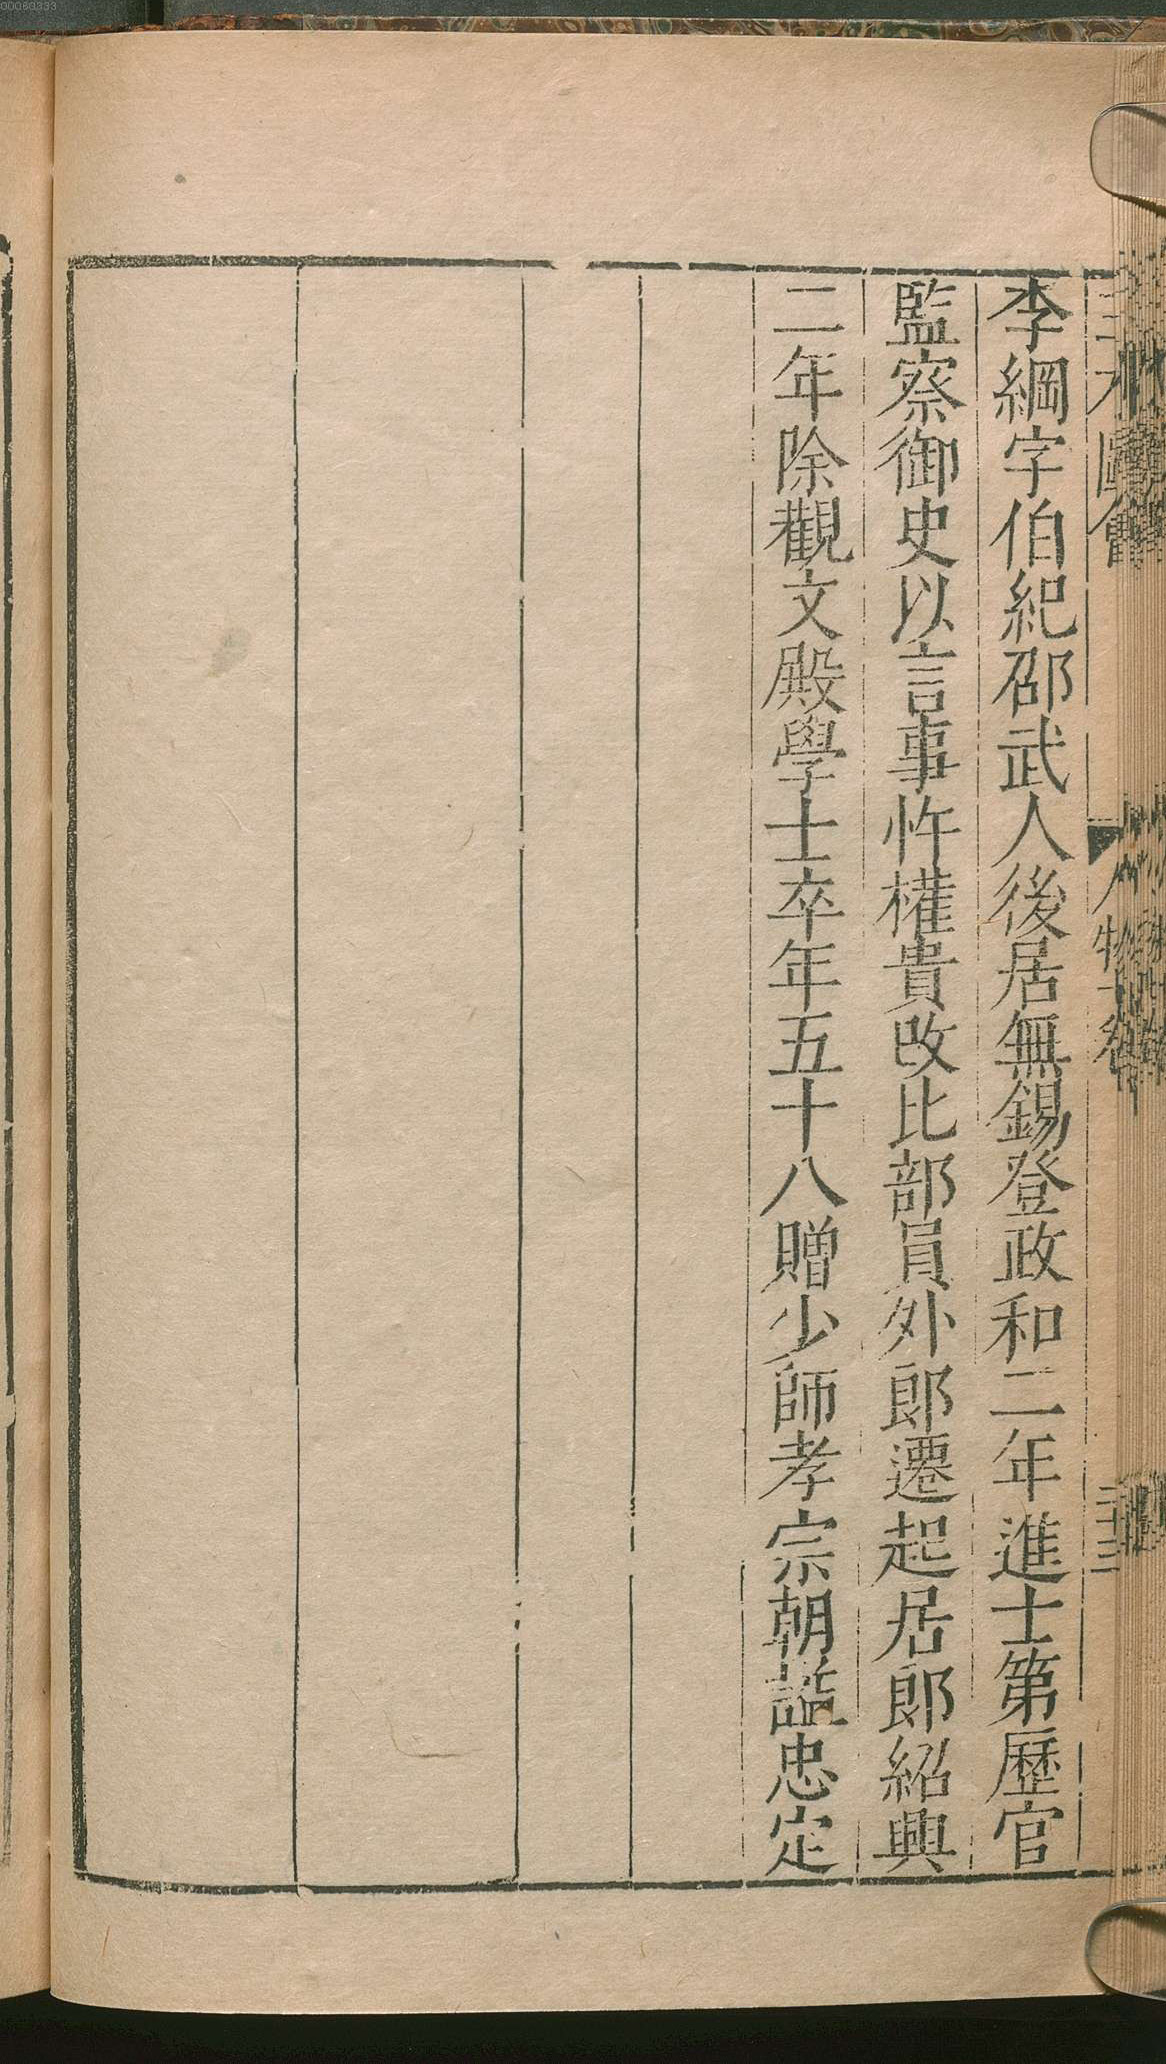 00060333
三才圖會 人物七卷 三十三
李綱字伯紀邵武人後居無錫登政和二年進士第歷官
監察御史以言事忤權貴改比部員外郎遷起居郎紹興
二年除觀文殿學士卒年五十八贈少師孝宗朝諡忠定